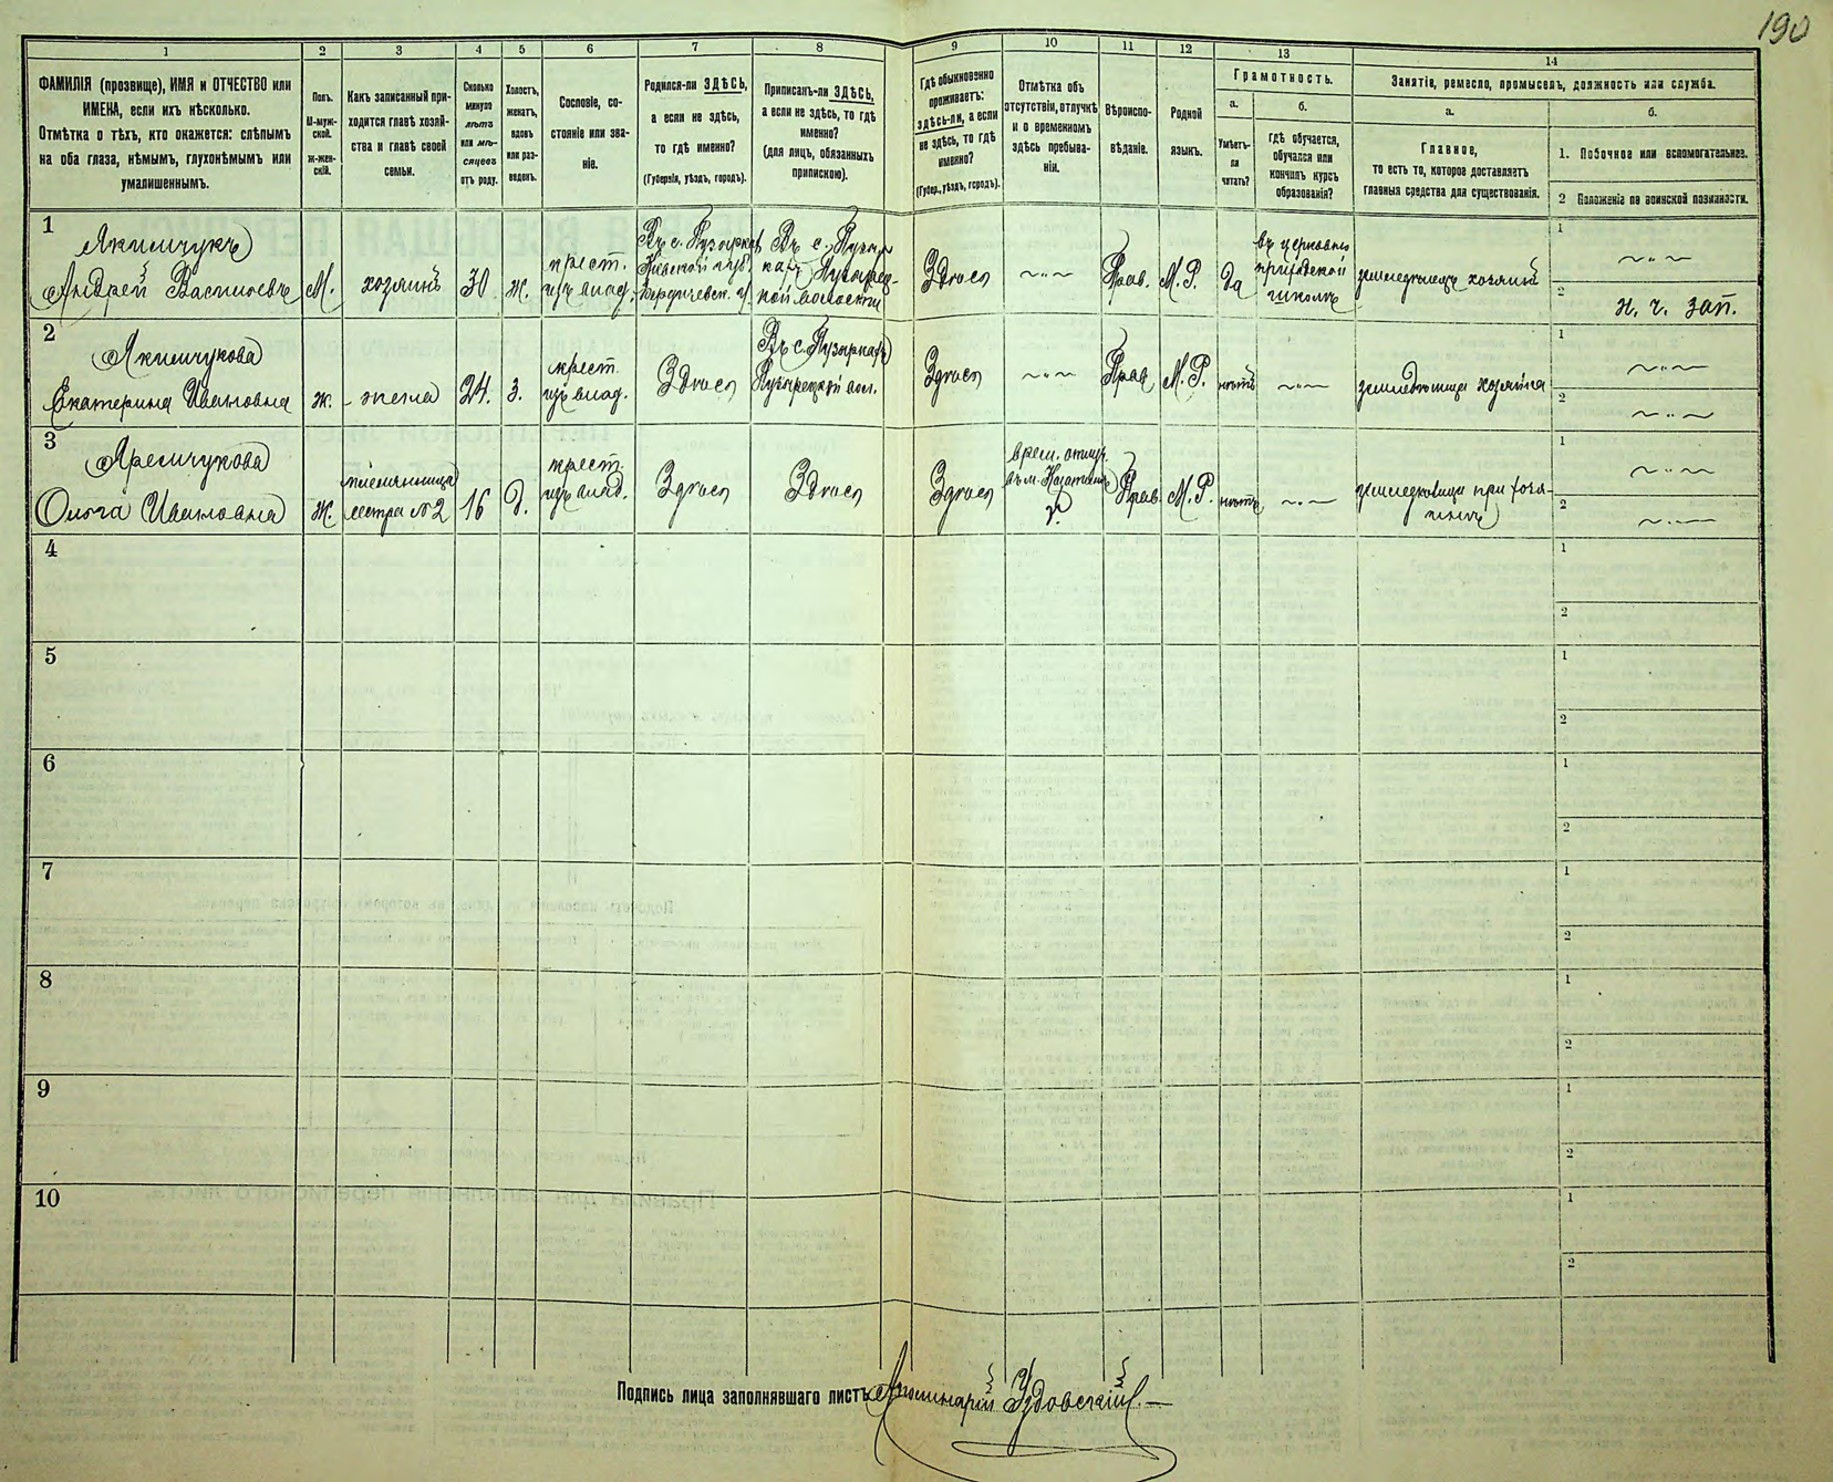 190
1
2
3
4
5
6
7
8
9
10
11
12
13
14
ФАМИЛІЯ (прозвище), ИМЯ и ОТЧЕСТВО или
ИМЕНА, если ихъ нѣсколько.
Отмѣтка о тѣхъ, кто окажется: слѣпымъ
на оба глаза, нѣмымъ, глухонѣмымъ или
умалишеннымъ.
Полъ.
М-муж-
ской.
Ж-жен-
скій.
Какъ записанный при-
ходится главѣ хозяй-
ства и главѣ своей
семьи.
Сколько
минуло
лѣтъ
или мѣ-
сяцевъ
отъ роду.
Холостъ,
женатъ,
вдовъ
или раз-
веденъ.
Сословіе, со-
стояніе или зва-
ніе.
Родился-ли ЗДѢСЬ,
а если не здѣсь,
то гдѣ именно?
(Губернія, уѣздъ, городъ).
Приписанъ-ли ЗДѢСЬ,
а если не здѣсь, то гдѣ
именно?
(для лицъ, обязанныхъ
припискою).
Гдѣ обыкновенно
проживаетъ:
здѣсь-ли, а если
не здѣсь, то гдѣ
именно?
(Губер., уѣздъ, городъ).
Отмѣтка объ
отсутствіи, отлучкѣ
и о временномъ
здѣсь пребыва-
ніи.
Вѣроиспо-
вѣданіе.
Родной
языкъ.
Грамотность.
а.
б.
Умѣетъ-
ли
читать?
гдѣ обучается,
обучался или
кончилъ курсъ
образованія?
Занятіе, ремесло, промыселъ, должность или служба.
а.
б.
Главное,
то есть то, которое доставляетъ
главныя средства для существованія.
1. Побочное или вспомогательное.
2 Положеніе по воинской повинности.
1
Якимчукъ
Андрей Васильевъ
М.
хозяинъ
30
ж.
крест.
изъ влад.
Въ с. Пузырках
Кіевской губ.
Бердичевск. у.
Въ с. Пузыр
кахъ Пузырец-
кой волости
Здѣсь
~"~
Прав.
М. Р.
Да
въ церковно
приходской
школѣ
земледѣлецъ хозяинъ
1
~"~
2
н. ч. зап.
2
Якимчукова
Екатерина Ивановна
ж.
- жена
24.
З.
крест.
изъ влад.
Здѣсь
Въ с. Пузыркахъ
Пузырецкой вол.
Здѣсь
~"~
Прав
М. Р.
нѣтъ
~"~
1
~"~
2
~"~
3
Ольга Ивановна
Ж.
сестра №2
16
Д.
крест.
изъ влад.
Здѣсь
Здѣсь
Здѣсь
врем. отлуч.
Прав
М. Р.
нѣтъ
~"~
1
~"~
2
~"~
4
1
2
5
1
2
6
1
2
7
1
2
8
1
2
9
1
2
10
1
2
Подпись лица заполнявшаго листъ